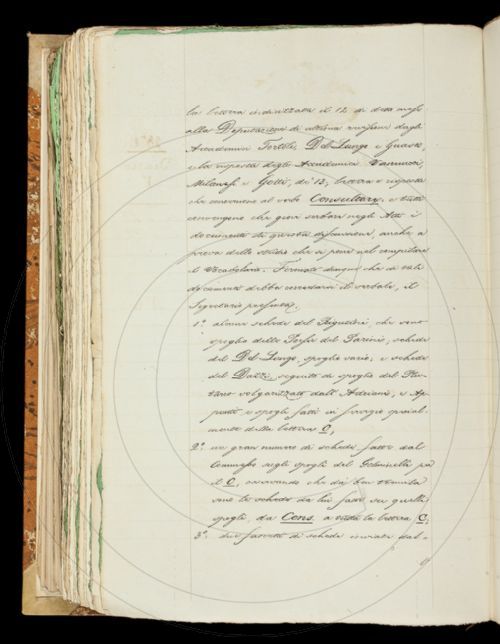 la lettera indirizzata il 12 di detto mese
alla Deputazione di ultima revisione dagli
Accademici Tortoli, Del-Lungo e Guasti,
e la risposta degli Accademici Vannucci,
Milanesi e Gotti, de' 13; lettera e risposta
che concernono al verbo Consultare; e tutti
convengono che giovi serbare negli Atti i
documenti di queste discussioni, anche a
prova dello studio che si pone nel compilare
il Vocabolario. Fermato dunque che di tali
documenti debba corredarsi il verbale, il
Segretario presenta,
1.° alcune schede del che sono
spoglio delle Poesie del Parini; schede
del Del-Lungo, spoglio vario; e schede
del Dazzi, seguito di spoglio del Plu-
tarco volgarizzato dall'Adriani, e Ap-
punti e spogli fatti in servigio special-
mente della lettera C;
2.° un gran numero di schede fatte dal
negli spogli del per
il C, osservando che da ben tremila
sono le schede da lui fatte su quelli
spogli, da Cons. a tutta la lettera C;
3.° due fascetti di schede inviate dal-